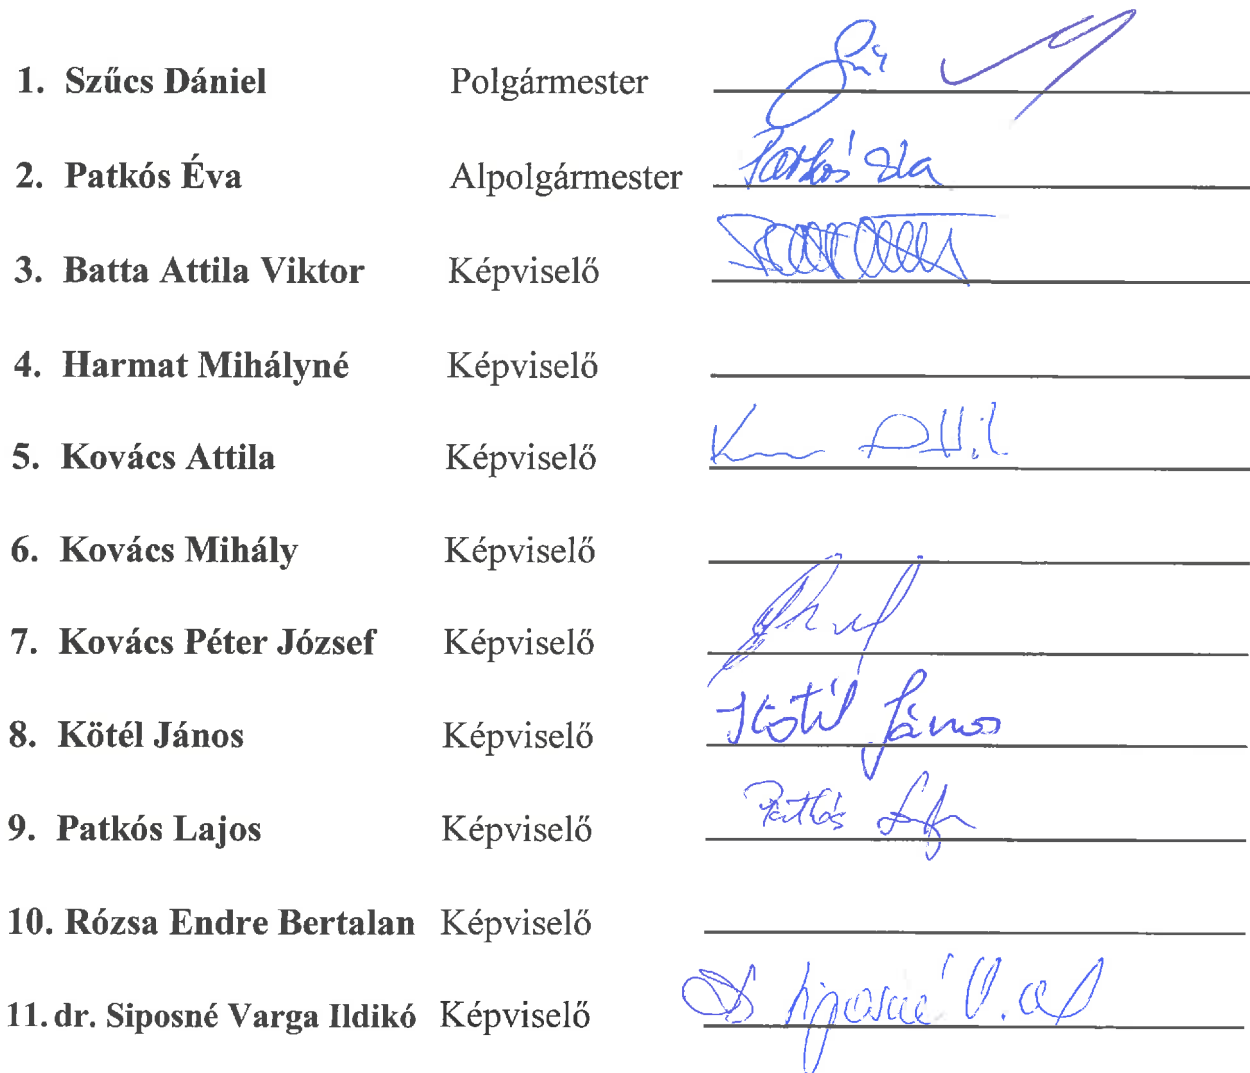 1. Szűcs Dániel Polgármester
2. Patkós Éva Alpolgármester Patkós Éva
3. Batta Attila Viktor Képviselő
4. Harmat Mihályné Képviselő
5. Kovács Attila Képviselő
6. Kovács Mihály Képviselő
7. Kovács Péter József Képviselő
8. Kötél János Képviselő Kötél János
9. Patkós Lajos Képviselő Patkós
10. Rózsa Endre Bertalan Képviselő
11. dr. Siposné Varga Ildikó Képviselő Siposné V.